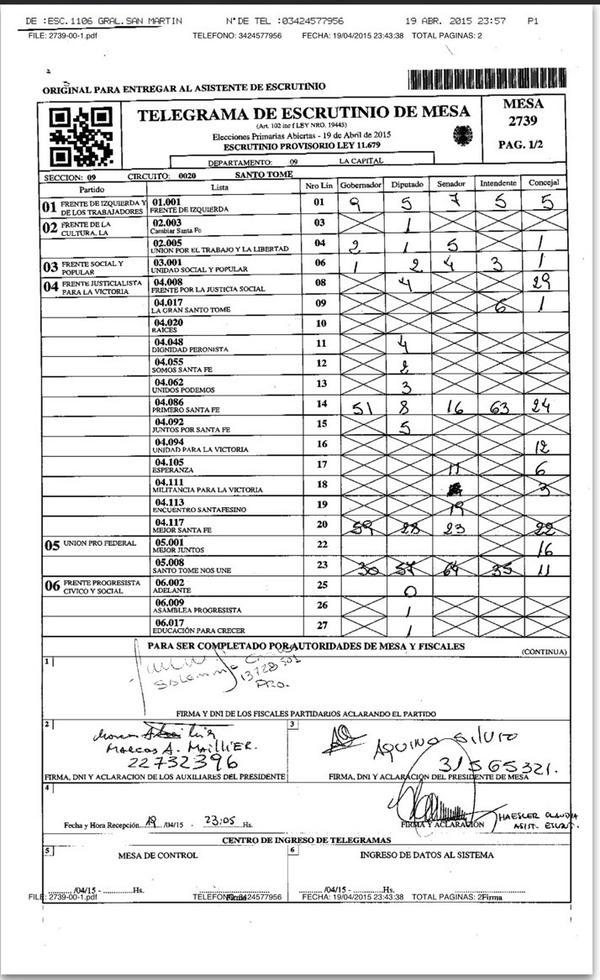 DE :ESC.1106 GRAL.SAN MARTIN N°DE TEL :03424577956 19 ABR. 2015 23:57 P1
FILE: 2739-00-1.pdf TELEFONO: 3424577956 FECHA: 19/04/2015 23:43:38 TOTAL PAGINAS: 2
ORIGINAL PARA ENTREGAR AL ASISTENTE DE ESCRUTINIO
TELEGRAMA DE ESCRUTINIO DE MESA
(Art. 102 inc f LEY NRO. 19445)
Elecciones Primarias Abiertas - 19 de Abril de 2015
ESCRUTINIO PROVISORIO LEY 11.679
DEPARTAMENTO: 09 LA CAPITAL
MESA
2739
PAG. 1/2
SECCION: 09 CIRCUITO: 0020 SANTO TOME
Partido Lista Nro Lin Gobernador Diputado Senador Intendente Concejal
01 FRENTE DE IZQUIERDA Y DE LOS TRABAJADORES 01.001 FRENTE DE IZQUIERDA 01 9 5 7 5 5
02 FRENTE DE LA CULTURA, LA 02.003 Cambiar Santa Fe 03 1
02.005 UNION POR EL TRABAJO Y LA LIBERTAD 04 2 1 5 1
03 FRENTE SOCIAL Y POPULAR 03.001 UNIDAD SOCIAL Y POPULAR 06 1 2 4 3 1
04 FRENTE JUSTICIALISTA PARA LA VICTORIA 04.008 FRENTE POR LA JUSTICIA SOCIAL 08 4 29
04.017 LA GRAN SANTO TOME 09 6 1
04.020 RAICES 10
04.048 DIGNIDAD PERONISTA 11 4
04.055 SOMOS SANTA FE 12 2
04.062 UNIDOS PODEMOS 13 3
04.086 PRIMERO SANTA FE 14 51 8 16 63 24
04.092 JUNTOS POR SANTA FE 15 5
04.094 UNIDAD PARA LA VICTORIA 16 12
04.105 ESPERANZA 17 11 6
04.111 MILITANCIA PARA LA VICTORIA 18 3
04.113 ENCUENTRO SANTAFESINO 19 19
04.117 MEJOR SANTA FE 20 59 28 23 22
05 UNION PRO FEDERAL 05.001 MEJOR JUNTOS 22 16
05.008 SANTO TOME NOS UNE 23 30 57 64 35 11
06 FRENTE PROGRESISTA CIVICO Y SOCIAL 06.002 ADELANTE 25 0
06.009 ASAMBLEA PROGRESISTA 26 1
06.017 EDUCACIÓN PARA CRECER 27 1
PARA SER COMPLETADO POR AUTORIDADES DE MESA Y FISCALES (CONTINUA)
1
PRO.
FIRMA Y DNI DE LOS FISCALES PARTIDARIOS ACLARANDO EL PARTIDO
2
MARCOS A. MAILLIER.
22732396
FIRMA, DNI Y ACLARACION DE LOS AUXILIARES DEL PRESIDENTE
3
AQUINO SILVIO
31565321.
FIRMA, DNI Y ACLARACIÓN DEL PRESIDENTE DE MESA
4
Fecha y Hora Recepción 19 /04/15 - 23:05 Hs.
FIRMA Y ACLARACIÓN
HAESLER CLAUDIA
CENTRO DE INGRESO DE TELEGRAMAS
5 MESA DE CONTROL
6 INGRESO DE DATOS AL SISTEMA
/04/15 - Hs. Firma
/04/15 - Hs. Firma
FILE: 2739-00-1.pdf TELEFONO: 3424577956 FECHA: 19/04/2015 23:43:38 TOTAL PAGINAS: 2